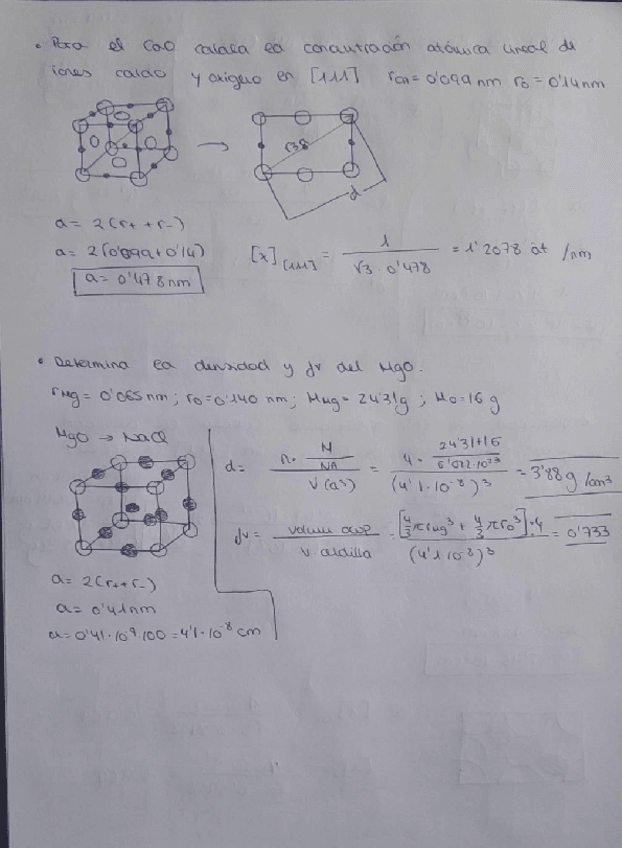 • Para el CaO calcula la concentración atómica lineal de
iones calcio y oxigeno en [111] rca = 0'099 nm ro = 0'14 nm
√3 a
d
a = 2(r+ + r-)
a = 2(0'099 + 0'14)
a = 0'478 nm
[x] [111] = 1 / √3 · 0'478 = 1'2078 at /nm
• Determina la densidad y fv del MgO.
rMg = 0'065 nm; ro = 0'140 nm; MMg = 24'31g ; Mo = 16 g
MgO → NaCl
d = n · M/NA / V(a³) = 4 · 24'31+16/6'022·10²³ / (4'1·10⁻⁸)³ = 3'88 g/cm³
fv = volum ocup / V celdilla = [4/3 π rMg³ + 4/3 π ro³]·4 / (4'1 10⁻⁸)³ = 0'733
a = 2(r+ + r-)
a = 0'41nm
a = 0'41·10⁻⁹ 100 = 4'1·10⁻⁸ cm